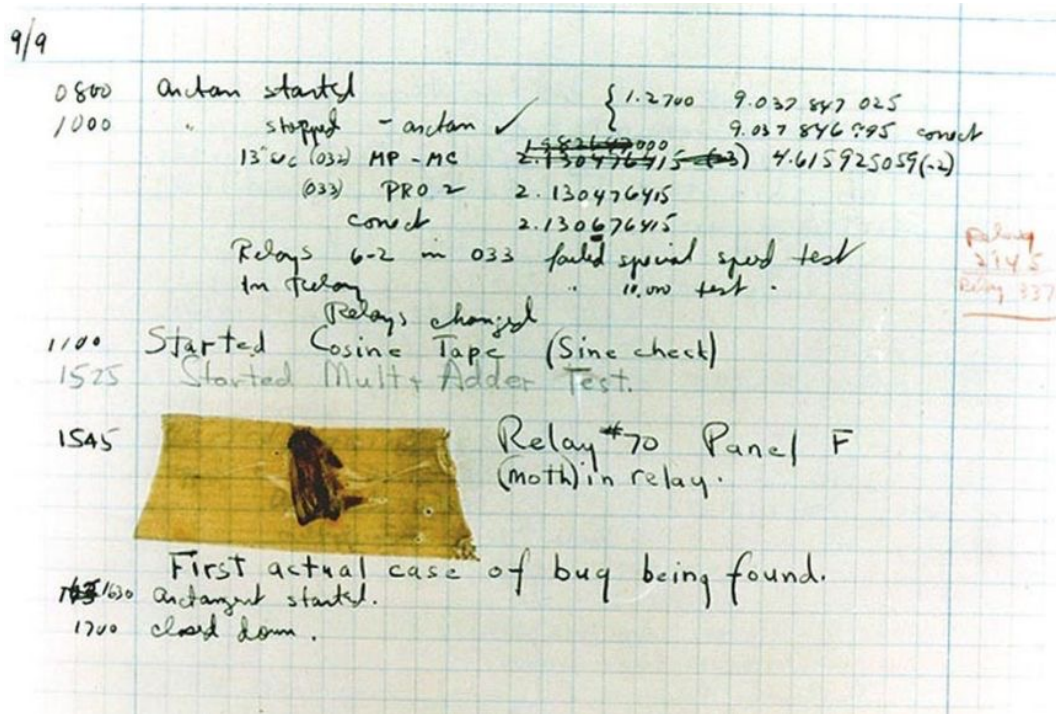 9/9
0800 arctan started { 1.2700 9.037 847 025
1000 " stopped - arctan ✓ 9.037 846 995 correct
13"uc (032) MP - MC 2.130476415 (-3) 4.615925059(-2)
(033) PRO 2 2.130476415
correct 2.130676415
Relays 6-2 in 033 failed special speed test
In Relay " 10.000 test .
Relays changed
Relay
2145
Relay 337
1100 Started Cosine Tape (Sine check)
1525 Started Mult + Adder Test.
1545 Relay #70 Panel F
(moth) in relay.
First actual case of bug being found.
1630 arctangent started.
1700 closed down.